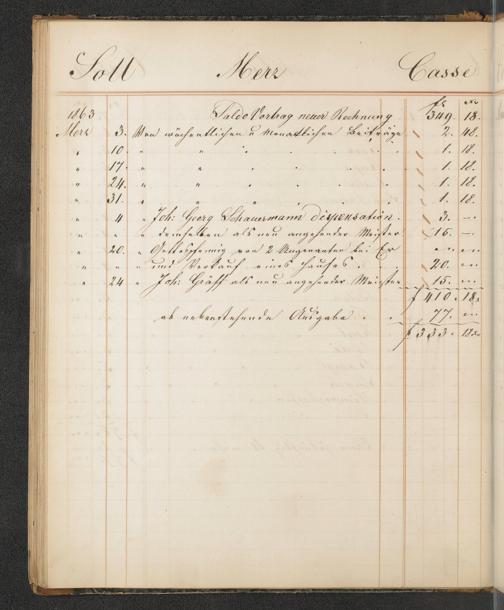 Soll Merz Casse
fl xr
1863 Saldo Vortrag neuer Rechnung 349. 18.
Merz 3. Von wöchentlichen u Monatlichen Beiträge 2. 48.
" 10. " " " " 1. 18.
" 17. " " " " 1. 18.
" 24. " " " " 1. 18.
" 31. " " " " 1. 18.
" 4 " Joh: Georg Schauermann dispensation. 3. —
" " " demselben als neu angehender Meister 15. —
" 20. " Gottespfennig von 2 Ungenanten bei
" " " und Verkauf eines Hauses. 20. —
" 24 " Joh: Gräff als neu angehender Meister 15. —
f 410. 18.
ab nebenstehende Ausgabe 77. —
f 333. 18.